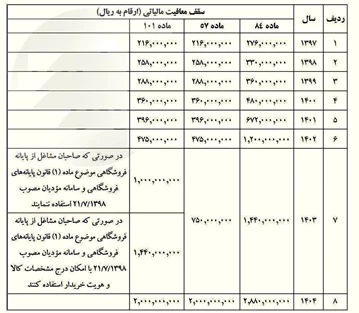 ردیف سال سقف معافیت مالیاتی (ارقام به ریال)
ماده ۸۴ ماده ۵۷ ماده ۱۰۱
۱ ۱۳۹۷ ۲۷۶,۰۰۰,۰۰۰ ۲۱۶,۰۰۰,۰۰۰ ۲۱۶,۰۰۰,۰۰۰
۲ ۱۳۹۸ ۳۳۰,۰۰۰,۰۰۰ ۲۵۸,۰۰۰,۰۰۰ ۲۵۸,۰۰۰,۰۰۰
۳ ۱۳۹۹ ۳۶۰,۰۰۰,۰۰۰ ۲۸۸,۰۰۰,۰۰۰ ۲۸۸,۰۰۰,۰۰۰
۴ ۱۴۰۰ ۴۸۰,۰۰۰,۰۰۰ ۳۶۰,۰۰۰,۰۰۰ ۳۶۰,۰۰۰,۰۰۰
۵ ۱۴۰۱ ۶۷۲,۰۰۰,۰۰۰ ۳۹۶,۰۰۰,۰۰۰ ۳۹۶,۰۰۰,۰۰۰
۶ ۱۴۰۲ ۱,۲۰۰,۰۰۰,۰۰۰ ۴۷۵,۰۰۰,۰۰۰ ۴۷۵,۰۰۰,۰۰۰
۷ ۱۴۰۳ ۱,۴۴۰,۰۰۰,۰۰۰ ۷۵۰,۰۰۰,۰۰۰
۱,۰۰۰,۰۰۰,۰۰۰
در صورتی که صاحبان مشاغل از پایانه
فروشگاهی موضوع ماده (۱) قانون پایانه‌های
فروشگاهی و سامانه مؤدیان مصوب
۲۱/۷/۱۳۹۸ استفاده ننمایند
۱,۴۴۰,۰۰۰,۰۰۰
در صورتی که صاحبان مشاغل از پایانه
فروشگاهی موضوع ماده (۱) قانون پایانه‌های
فروشگاهی و سامانه مؤدیان مصوب
۲۱/۷/۱۳۹۸ با امکان درج مشخصات کالا
و هویت خریدار استفاده کنند
۸ ۱۴۰۴ ۲,۸۸۰,۰۰۰,۰۰۰ ۲,۰۰۰,۰۰۰,۰۰۰ ۲,۰۰۰,۰۰۰,۰۰۰